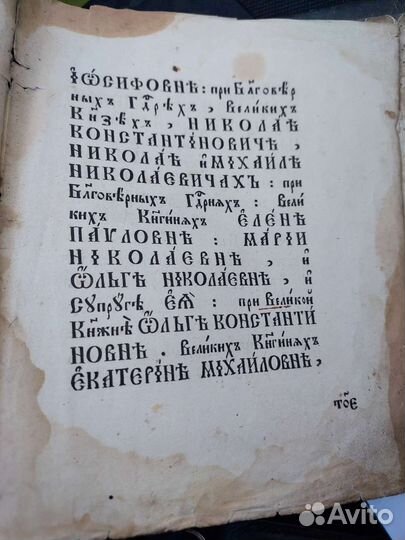 І҆ѡ́сифовнѣ: при Бл҃говѣр
ныхъ Гдⷭ҇рѣхъ, Великихъ
Кн҃ѕѣхъ, НИКОЛАѢ
КОНСТАНТІ́НОВИЧѢ,
НИКОЛА́Ѣ и҆ МІХАИЛѢ
НИКОЛАЕВИЧАХЪ: при
Бл҃говѣрныхъ Гдⷭ҇рняхъ: Вели
кихъ Кн҃гиняхъ Е҆ЛЕ́НѢ
ПА́ѴЛОВНѢ: МАРІИ
НІКОЛАЕВНѢ, и҆
Ѽ҆ЛЬГѢ НІКОЛАЕВНѢ, и҆
СꙋПРꙋ́ГѢ Е҆Ѧ̀: при Великой
Кн҃жнѣ Ѽ҆ЛЬГѢ КОНСТАНТІ
НОВНѢ. Великихъ Кн҃гиняхъ
Е҆КАТЕРІ́НѢ МІХАИЛОВНѢ,
тоѐ
Avito